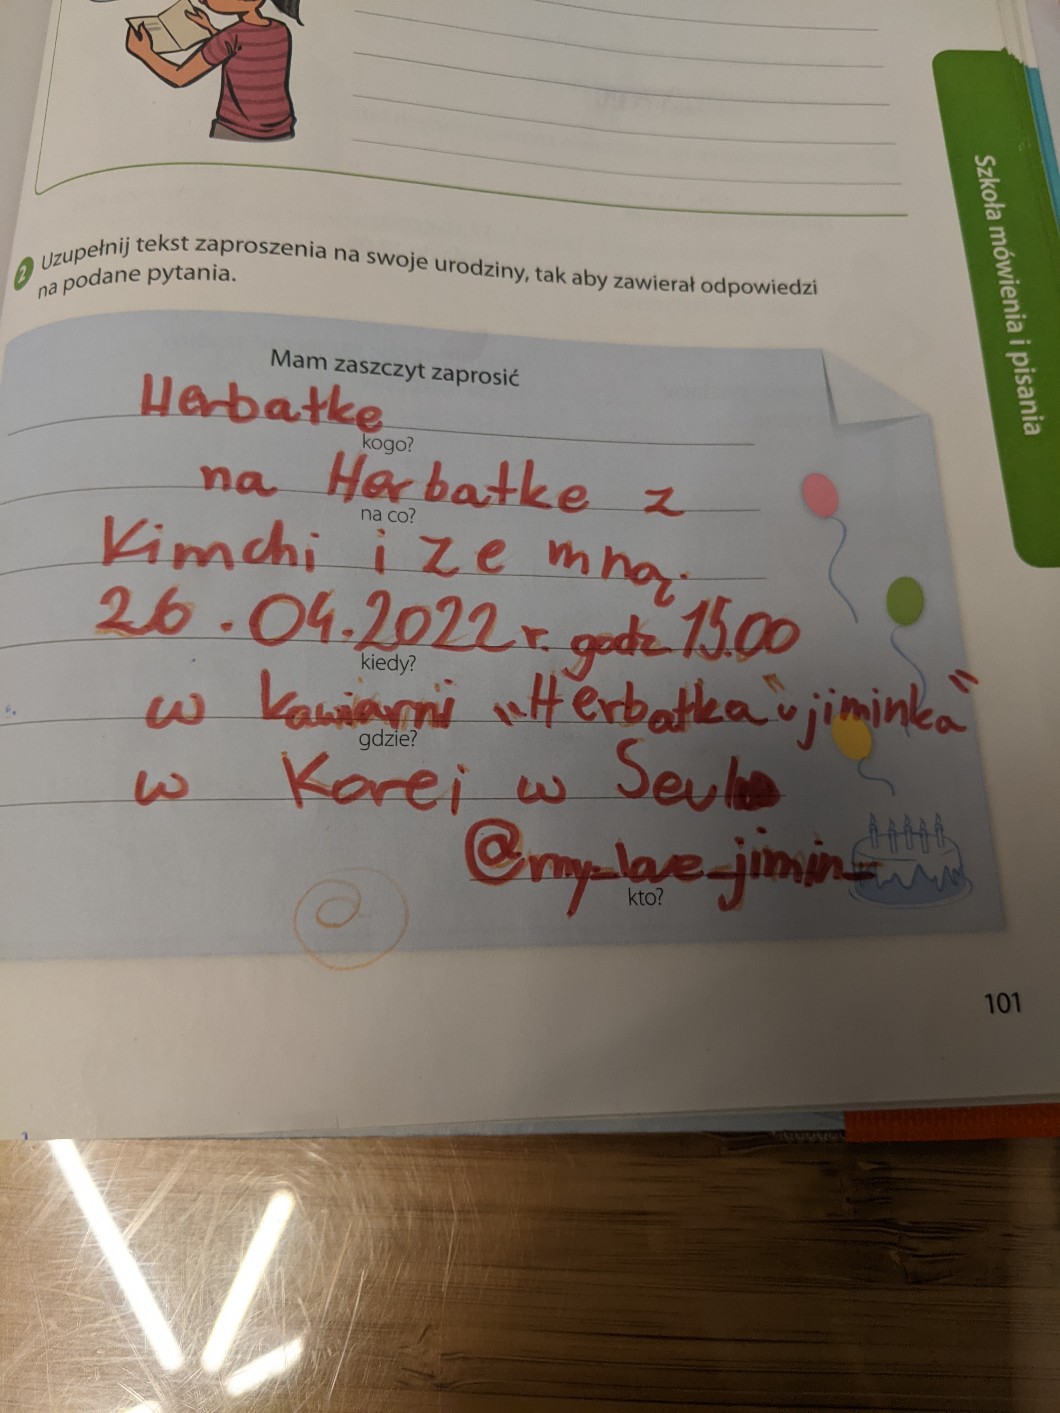 Szkoła mówienia i pisania
2 Uzupełnij tekst zaproszenia na swoje urodziny, tak aby zawierał odpowiedzi
na podane pytania.
Mam zaszczyt zaprosić
Herbatkę
kogo?
na Herbatke z
na co?
Kimchi i ze mną.
26.04.2022 r. godz 15.00
kiedy?
w kawiarni „Herbatka u jiminka"
gdzie?
w Korei w Seulu
@my_love_jimin_
kto?
101